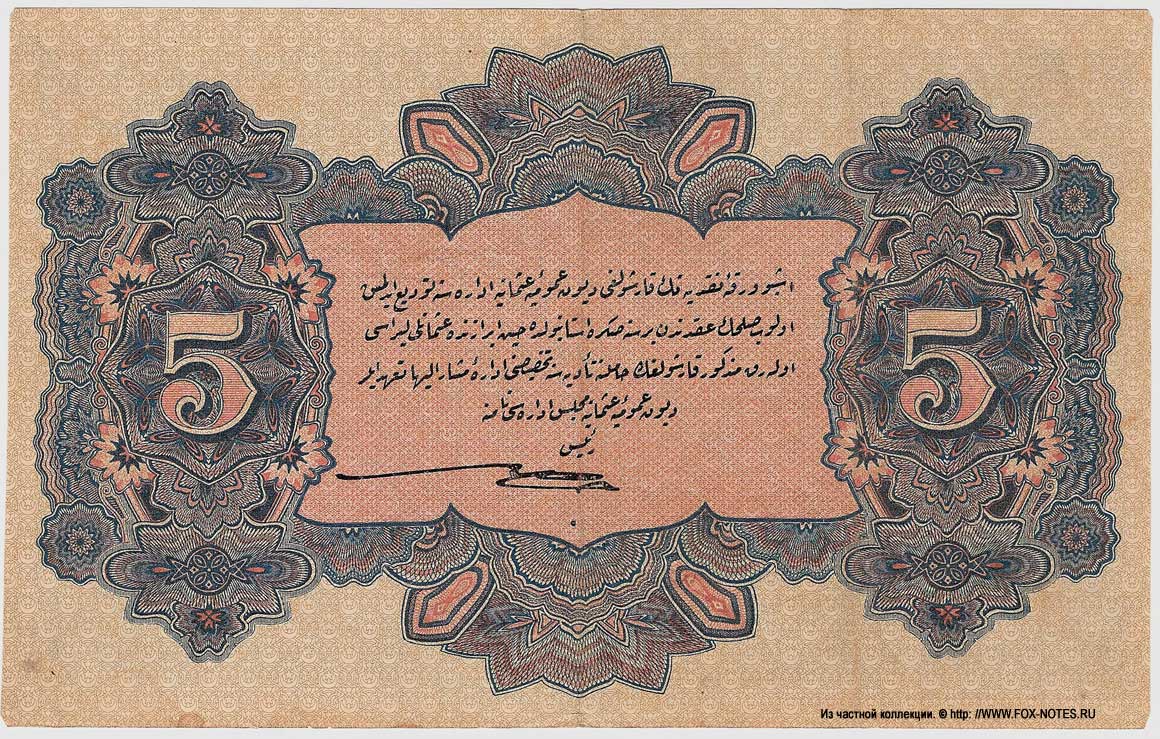 اشبو ورقهٔ نقديه نك قارشولغى ديون عموميهٔ عثمانيه اداره سنه توديع ايدلمش
اولوب صلحك عقدندن برسنه صكره استانبولده حين ابرازنده عثمانلى ليراسى
اوله رق مذكور قارشولغك حاملنه تأديه سنه تخصيصنى ادارهٔ مشار اليها تعهد ايلر
ديون عموميهٔ عثمانيه مجلس اداره سى نامنه
رئيس
5
5
Из частной коллекции. © http: //WWW.FOX-NOTES.RU